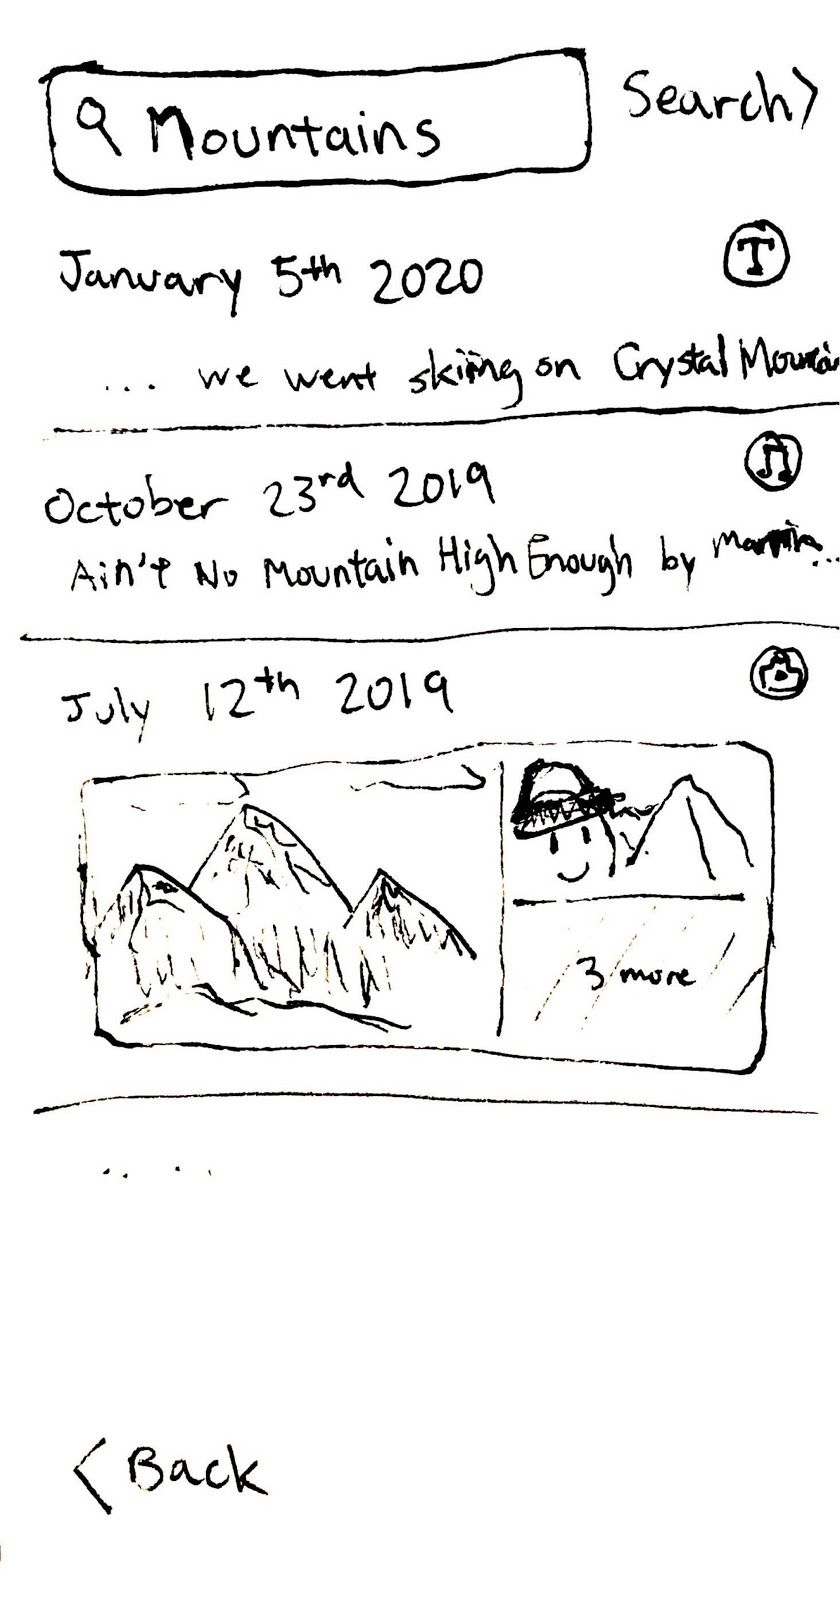 Mountains
Search>
January 5th 2020
T
... we went skiing on Crystal Mountain
October 23rd 2019
Ain't No Mountain High Enough by Marvin...
July 12th 2019
3 more
.. . .
< Back